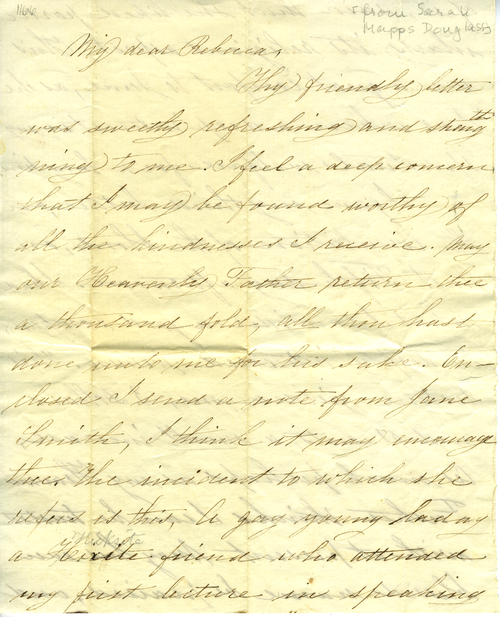 1166
(from Sarah
Mapps Douglass)
My dear Rebecca,
Thy friendly letter
was sweetly refreshing and streng
ning to me. I feel a deep concern
that I may be found worthy of
all the kindnesses I receive. May
our Heavenly Father return thee
a thousand fold, all thou hast
done unto me for his sake. En-
closed I send a note from Jane
Smith, I think it may encourage
thee. The incident to which she
refers is this, A gay young lady
a friend who attended
my first lecture in speaking